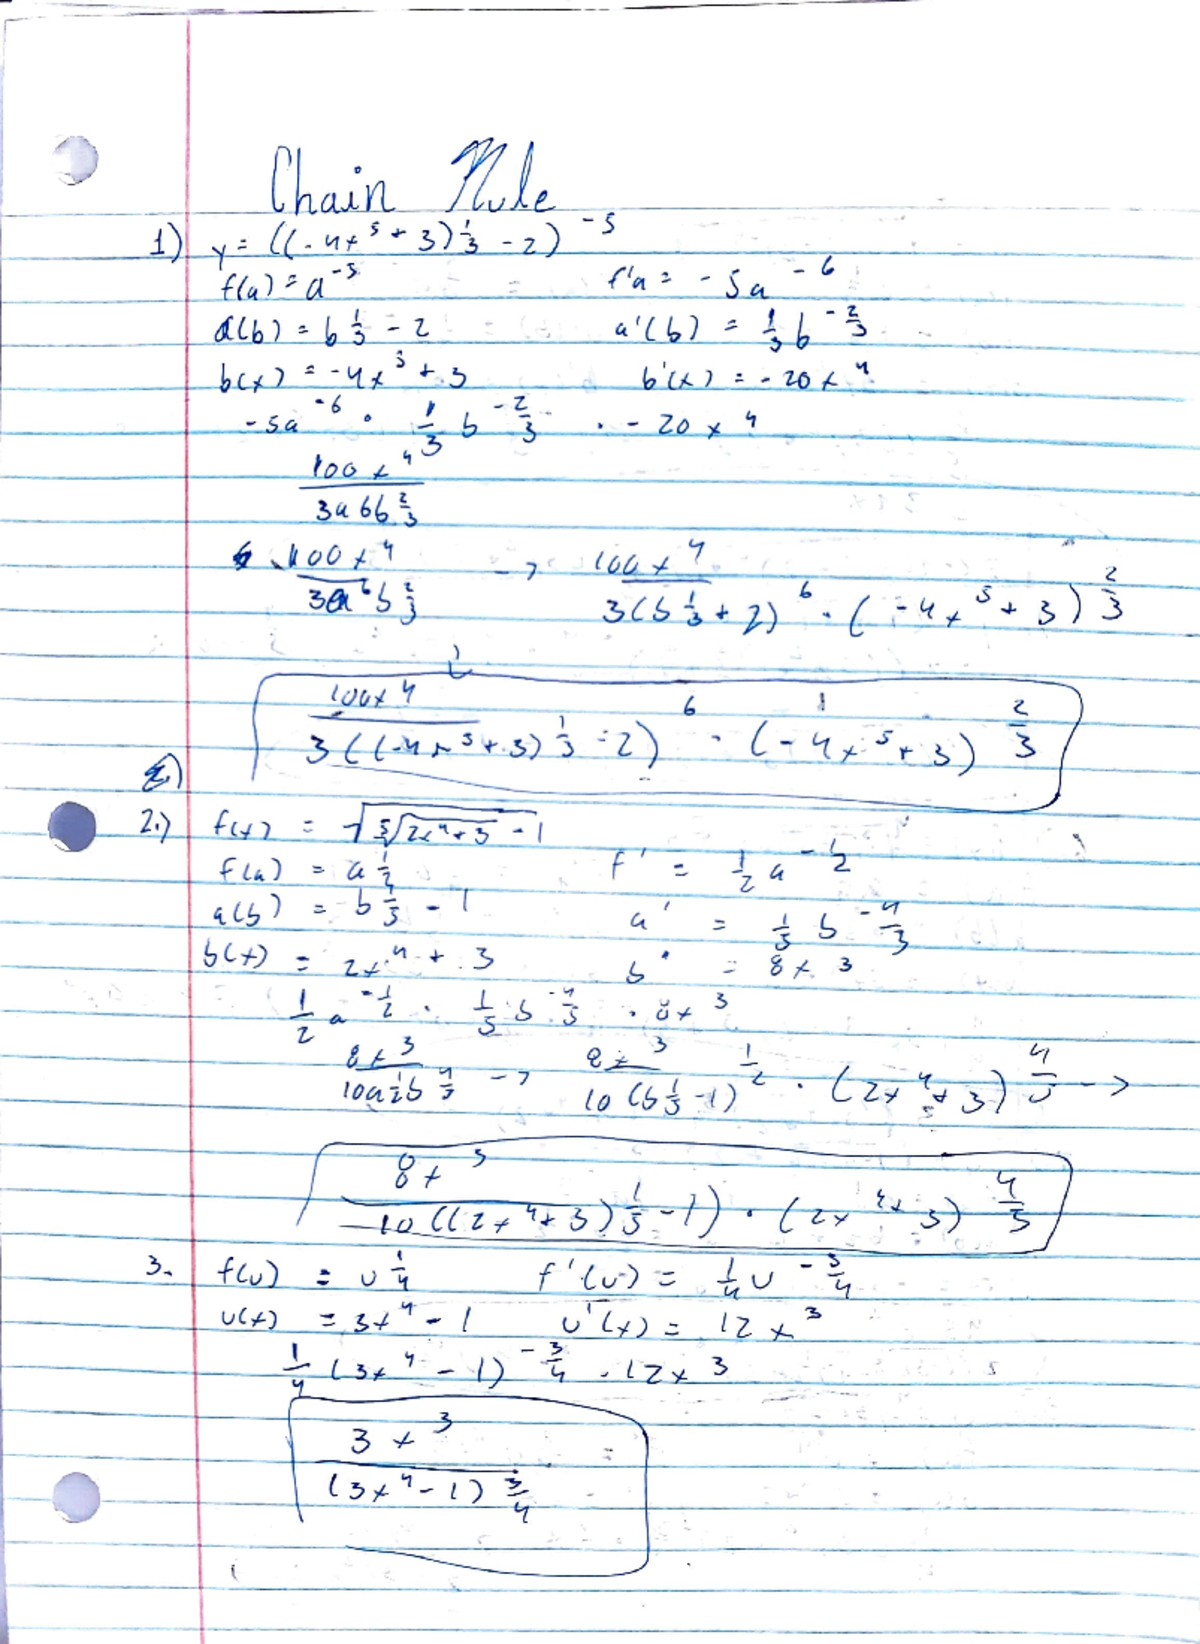 Chain Rule
1) y = ((-4x^5 + 3)^1/3 - 2)^-5
f(a) = a^-5 f'a = -5a^-6
a(b) = b^1/3 - 2 a'(b) = 1/3 b^-2/3
b(x) = -4x^5 + 3 b'(x) = -20x^4
-5a^-6 · 1/3 b^-2/3 · -20x^4
100x^4 / 3a6b^2/3
100x^4 / 3a^6b^2/3 -> 100x^4 / 3(b^1/3 + 2)^6 · (-4x^5 + 3)^2/3
100x^4 / 3((-4x^5 + 3)^1/3 - 2)^6 · (-4x^5 + 3)^2/3
2.) f(x) = √(⁵√(2x^4 + 3) - 1)
f(a) = a^1/2 f' = 1/2 a^-1/2
a(b) = b^1/5 - 1 a' = 1/5 b^-4/5
b(x) = 2x^4 + 3 b' = 8x^3
1/2 a^-1/2 · 1/5 b^-4/5 · 8x^3
8x^3 / 10a^1/2 b^4/5 -> 8x^3 / 10(b^1/5 - 1)^1/2 · (2x^4 + 3)^4/5 ->
8x^3 / 10((2x^4 + 3)^1/5 - 1) · (2x^4 + 3)^4/5
3. f(u) = u^1/4 f'(u) = 1/4 u^-3/4
u(x) = 3x^4 - 1 u'(x) = 12x^3
1/4 (3x^4 - 1)^-3/4 · 12x^3
3x^3 / (3x^4 - 1)^3/4